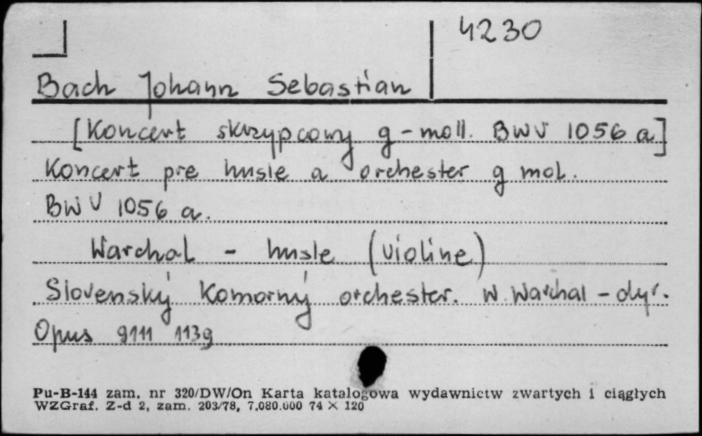 4230
Bach Johann Sebastian
[Koncert skrzypcowy g-moll. BWV 1056 a]
Koncert pre husle a orchester g mol.
BWV 1056 a.
Warchal - husle (violine)
Slovenský Komorný orchester. W. Warchal - dyr.
Opus 9111 1139
Pu-B-144 zam. nr 320/DW/On Karta katalogowa wydawnictw zwartych i ciągłych
WZGraf. Z-d 2, zam. 203/78, 7.080.000 74 × 120